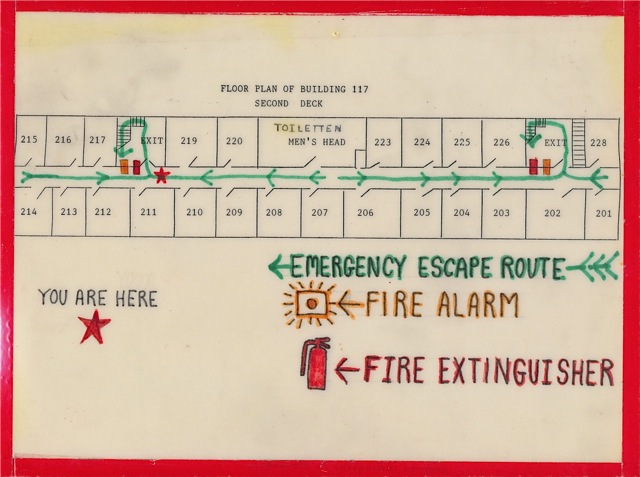 FLOOR PLAN OF BUILDING 117
SECOND DECK
TOILETTEN
215 216 217 EXIT 219 220 MEN'S HEAD 223 224 225 226 EXIT 228
214 213 212 211 210 209 208 207 206 205 204 203 202 201
EMERGENCY ESCAPE ROUTE
YOU ARE HERE
FIRE ALARM
FIRE EXTINGUISHER